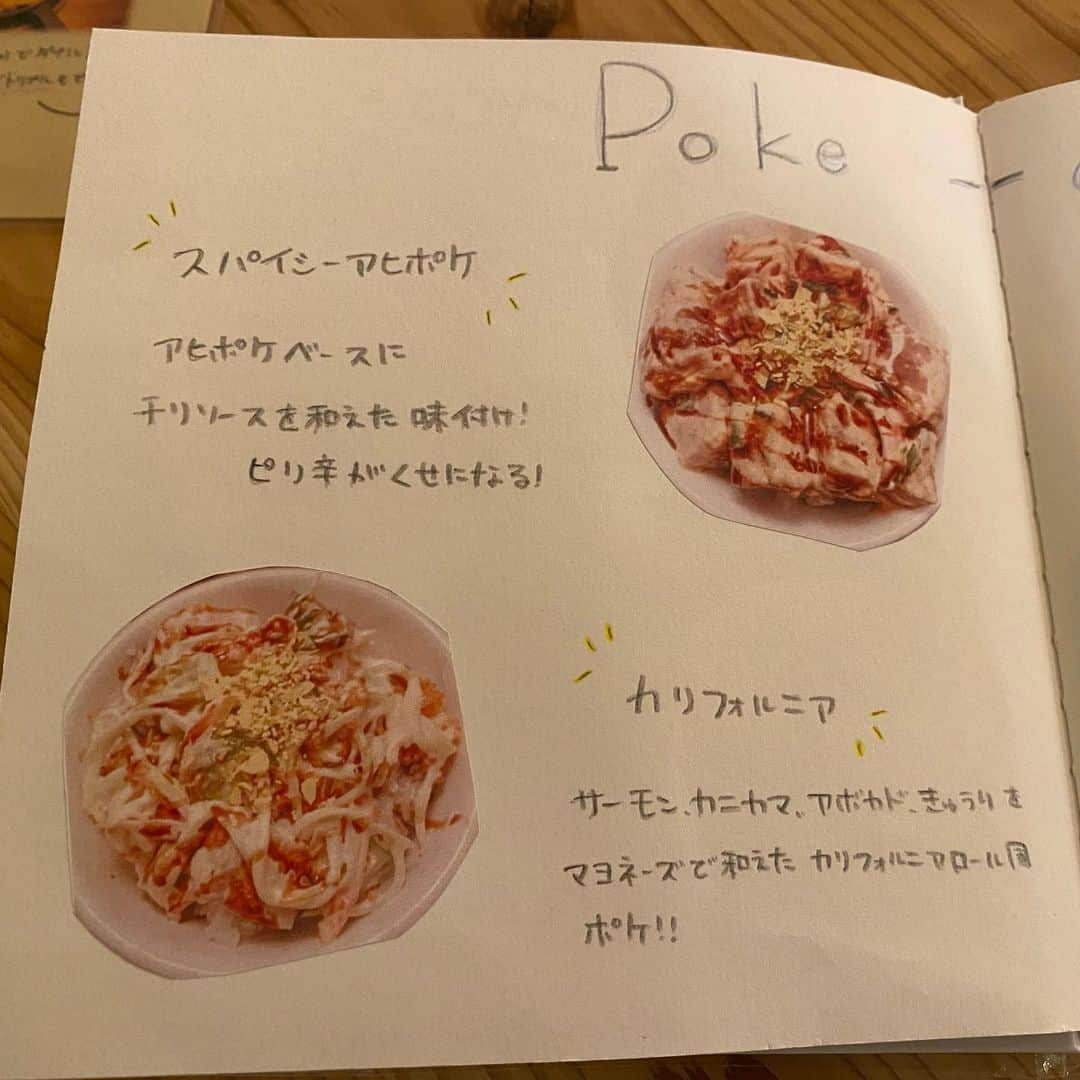 Poke
スパイシーアヒポケ
アヒポケベースに
チリソースを和えた味付け!
ピリ辛がくせになる!
カリフォルニア
サーモン、カニカマ、アボカド、きゅうりを
マヨネーズで和えた カリフォルニアロール風
ポケ!!